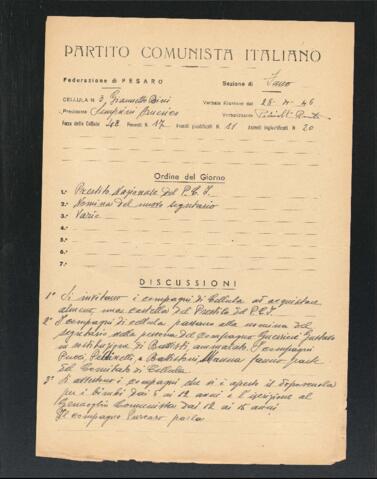 PARTITO COMUNISTA ITALIANO
Federazione di PESARO
Sezione di Fano
CELLULA N. 3 Giannetto Dini
Verbale Riunione del 28-11-46
Presidente Americo
Verbalizzante
Forza della Cellula 48 Presenti N. 17 Assenti giustificati N. 11 Assenti ingiustificati N. 20
Ordine del Giorno
1.° Prestito Nazionale del P.C.I.
2.° Nomina del nuovo segretario
3.° Varie
4.°
5.°
6.°
7.°
DISCUSSIONI
1° Si invitano i compagni di Cellula ad acquistare
almeno una cartella del Prestito del P.C.I.
2° I compagni di cellula passano alla nomina del
segretario nella persona del compagno Gustavo
in sostituzione di Battisti, ammalato. I compagni
Pucci, e Battistoni fanno parte
del Comitato di Cellula
3° Si avvertono i compagni che si è aperto il doposcuola
per i bimbi dai 5 ai 12 anni e l'iscrizione al
Comunista dai 12 ai 15 anni
Il compagno parla